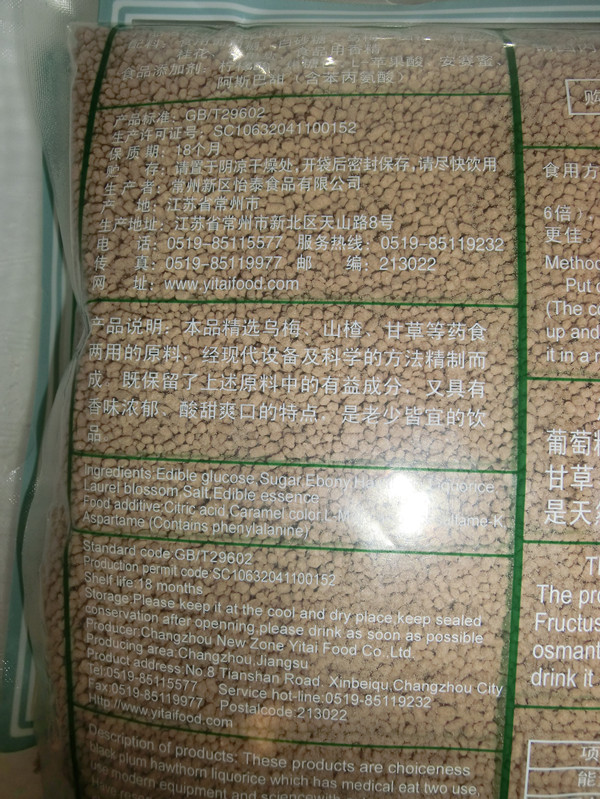 食品添加剂:
L-苹果酸、安赛蜜、
阿斯巴甜（含苯丙氨酸）
产品标准：GB/T29602
生产许可证号：SC10632041100152
保 质 期：18个月
贮 存：请置于阴凉干燥处,开袋后密封保存,请尽快饮用
生 产 者：常州新区怡泰食品有限公司
产 地：江苏省常州市
生产地址：江苏省常州市新北区天山路8号
电 话：0519-85115577 服务热线：0519-85119232
传 真：0519-85119977 邮 编：213022
网 址：www.yitaifood.com
产品说明：本品精选乌梅、山楂、甘草等药食
两用的原料，经现代设备及科学的方法精制而
成，既保留了上述原料中的有益成分，又具有
香味浓郁、酸甜爽口的特点，是老少皆宜的饮
品。
Ingredients:Edible glucose,Sugar,Ebony,
Laurel blossom,Salt,Edible essence
Food additive:Citric acid,Caramel color,
Aspartame (Contains phenylalanine)
Standard code:GB/T29602
Production permit code:SC10632041100152
Shelf life:18 months
Storage:Please keep it at the cool and dry place,keep sealed
conservation after openning,please drink as soon as possible
Producer:Changzhou New Zone Yitai Food Co.,Ltd.
Producing area:Changzhou,Jiangsu
Product address:No.8 Tianshan Road Xinbeiqu,Changzhou City
Tel:0519-85115577 Service hot-line:0519-85119232
Fax:0519-85119977 Postalcode:213022
Http://www.yitaifood.com
Description of products: These products are choiceness
black plum hawthorn liquorice which has medical eat two use,
use modern equipment and science
购
食用方
6倍），
更佳
Method
Put
(The co
up and
it in a
葡萄糖
甘草
是天然
The pro
Fructus
osmant
drink it
项
能